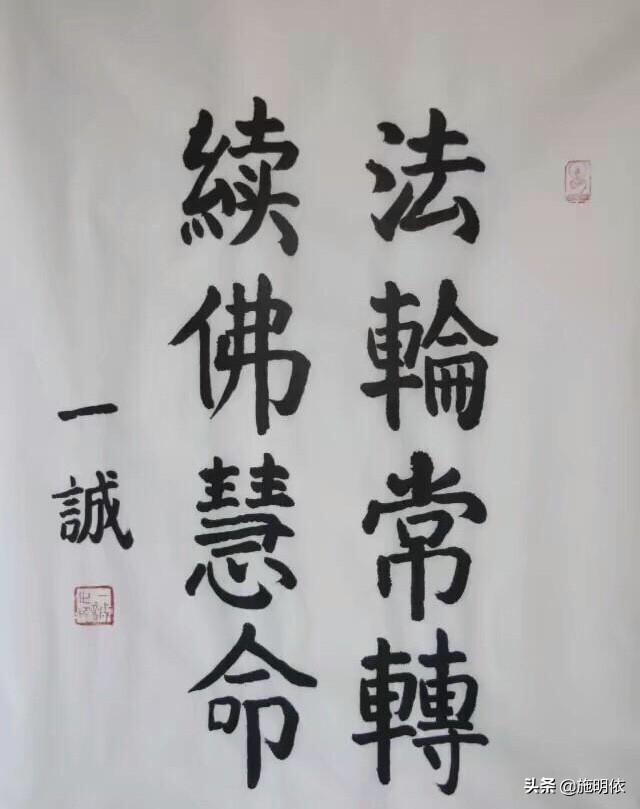 法輪常轉
続佛慧命
一誠
头条 @施明依